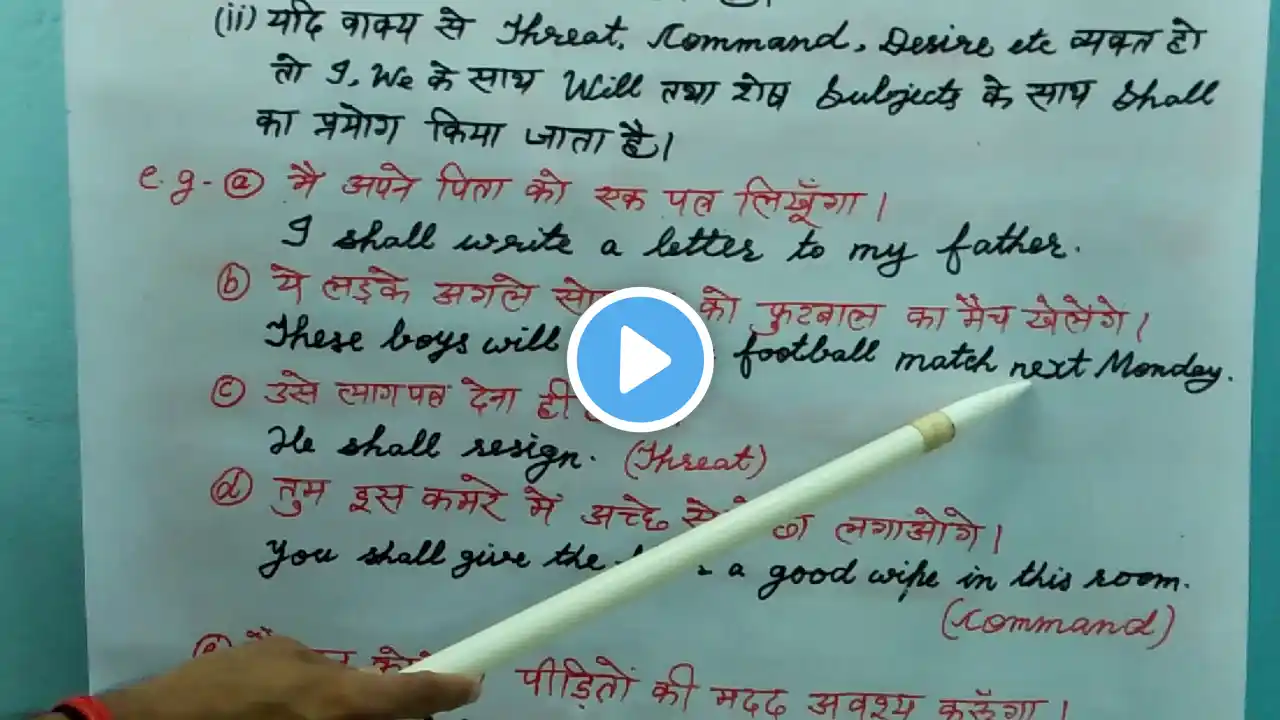 (ii) यदि वाक्य से Threat, Command, Desire etc व्यक्त हो
तो I, We के साथ Will तथा शेष Subjects के साथ Shall
का प्रयोग किया जाता है।
e.g- (a) मै अपने पिता को एक पत्र लिखूँगा।
I shall write a letter to my father.
(b) ये लड़के अगले को फुटबाल का मैच खेलेंगे।
These boys will football match next Monday.
(c) उसे त्यागपत्र देना ही
He shall resign. (Threat)
(d) तुम इस कमरे में अच्छे से लगाओगे।
You shall give the a good wipe in this room.
(Command)
पीड़ितों की मदद अवश्य करूँगा।